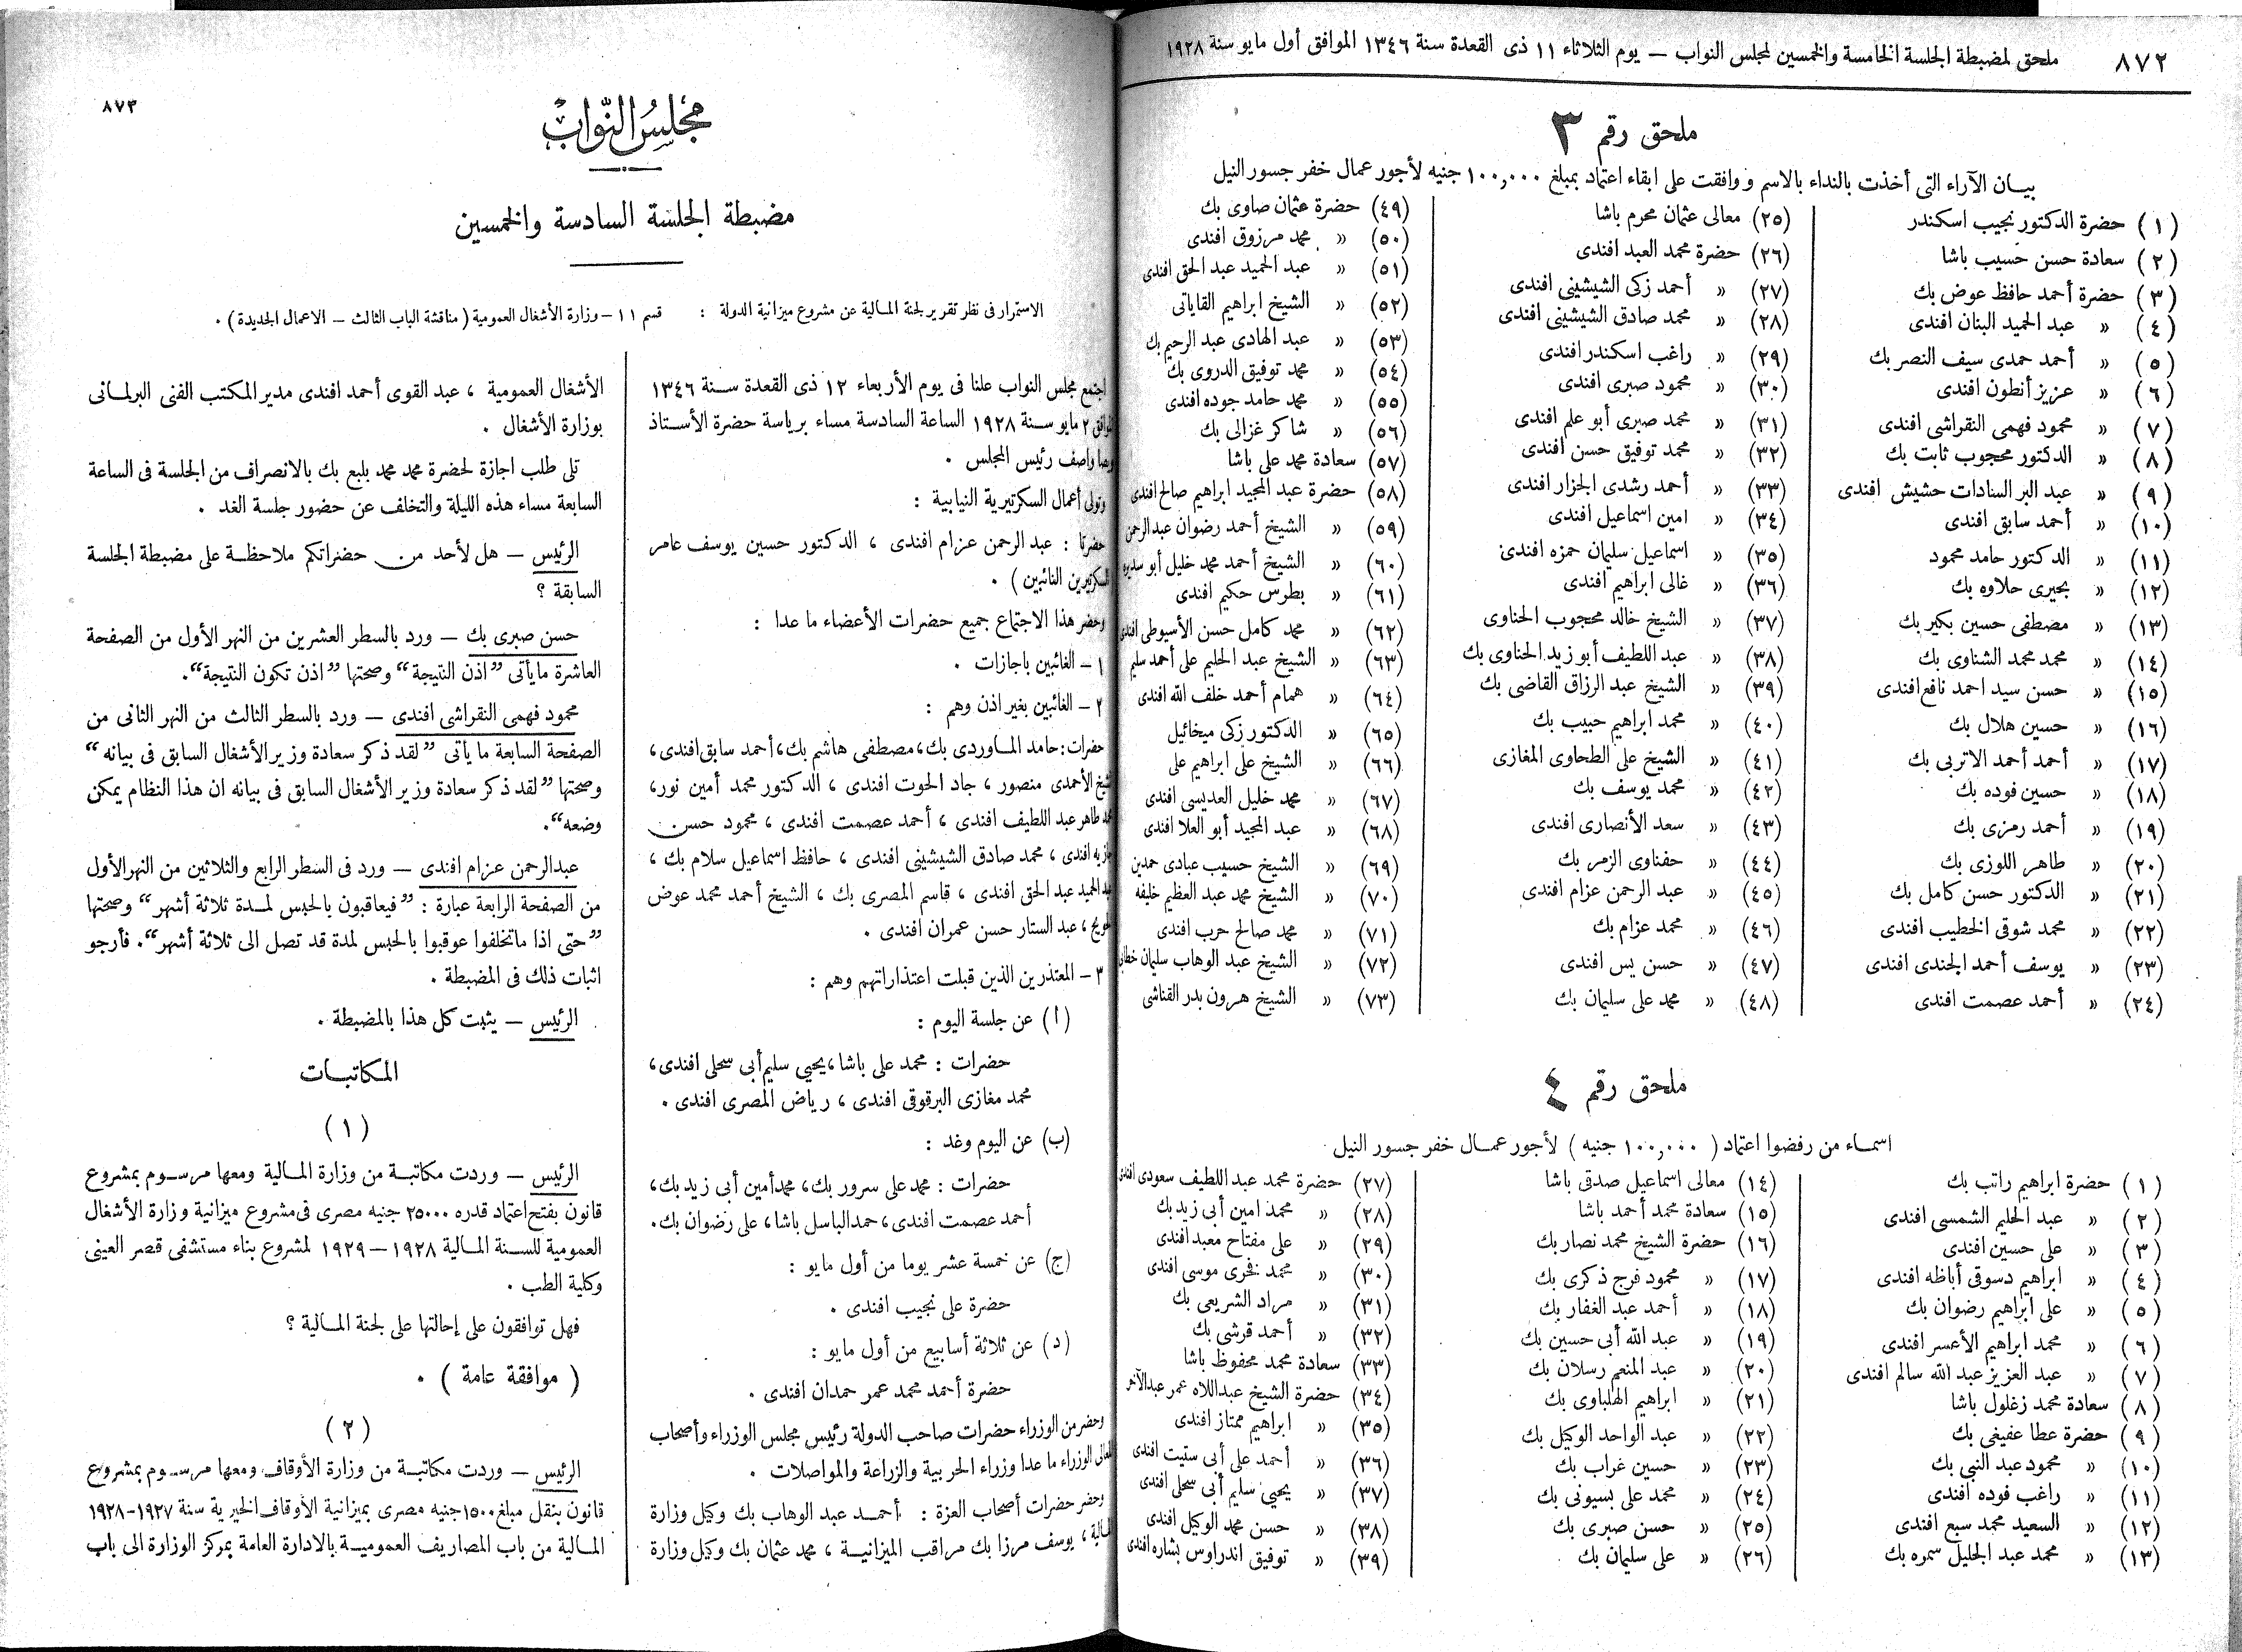 ٨٧٢ ملحق لمضبطة الجلسة الخامسة والخمسين لمجلس النواب — يوم الثلاثاء ١١ ذى القعدة سنة ١٣٤٦ الموافق أول مايو سنة ١٩٢٨
ملحق رقم ٣
بيان الآراء التى أخذت بالنداء بالاسم ووافقت على ابقاء اعتماد بمبلغ ١٠٠,٠٠٠ جنيه لأجور عمال خفر جسور النيل
(١) حضرة الدكتور نجيب اسكندر
(٢) سعادة حسن حسيب باشا
(٣) حضرة أحمد حافظ عوض بك
(٤) » عبد الحميد البنان افندى
(٥) » أحمد حمدى سيف النصر بك
(٦) » عزيز أنطون افندى
(٧) » محمود فهمى النقراشى افندى
(٨) » الدكتور محجوب ثابت بك
(٩) » عبد البر السادات حشيش افندى
(١٠) » أحمد سابق افندى
(١١) » الدكتور حامد محمود
(١٢) » بحيرى حلاوه بك
(١٣) » مصطفى حسين بكير بك
(١٤) » محمد محمد الشناوى بك
(١٥) » حسن سيد احمد نافع افندى
(١٦) » حسين هلال بك
(١٧) » أحمد أحمد الاتربى بك
(١٨) » حسين فوده بك
(١٩) » أحمد رمزى بك
(٢٠) » طاهر اللوزى بك
(٢١) » الدكتور حسن كامل بك
(٢٢) » محمد شوقى الخطيب افندى
(٢٣) » يوسف أحمد الجندى افندى
(٢٤) » أحمد عصمت افندى
(٢٥) معالى عثمان محرم باشا
(٢٦) حضرة محمد العبد افندى
(٢٧) » أحمد زكى الشيشينى افندى
(٢٨) » محمد صادق الشيشينى افندى
(٢٩) » راغب اسكندر افندى
(٣٠) » محمود صبرى افندى
(٣١) » محمد صبرى أبو علم افندى
(٣٢) » محمد توفيق حسن افندى
(٣٣) » أحمد رشدى الجزار افندى
(٣٤) » امين اسماعيل افندى
(٣٥) » اسماعيل سليمان حمزه افندى
(٣٦) » غالى ابراهيم افندى
(٣٧) » الشيخ خالد محجوب الحناوى
(٣٨) » عبد اللطيف أبو زيد الحناوى بك
(٣٩) » الشيخ عبد الرزاق القاضى بك
(٤٠) » محمد ابراهيم حبيب بك
(٤١) » الشيخ على الطحاوى المغازى
(٤٢) » محمد يوسف بك
(٤٣) » سعد الأنصارى افندى
(٤٤) » حفناوى الزمر بك
(٤٥) » عبد الرحمن عزام افندى
(٤٦) » محمد عزام بك
(٤٧) » حسن يس افندى
(٤٨) » محمد على سليمان بك
(٤٩) حضرة عثمان صاوى بك
(٥٠) » محمد مرزوق افندى
(٥١) » عبد الحميد عبد الحق افندى
(٥٢) » الشيخ ابراهيم القاياتى
(٥٣) » عبد الهادى عبد الرحيم بك
(٥٤) » محمد توفيق الدروى بك
(٥٥) » محمد حامد جوده افندى
(٥٦) » شاكر غزالى بك
(٥٧) سعادة محمد على باشا
(٥٨) حضرة عبد المجيد ابراهيم صالح افندى
(٥٩) » الشيخ أحمد رضوان عبد الرحمن
(٦٠) » الشيخ أحمد محمد خليل أبو سديره
(٦١) » بطرس حكيم افندى
(٦٢) » محمد كامل حسن الأسيوطى افندى
(٦٣) » الشيخ عبد الحليم على أحمد سليم
(٦٤) » همام أحمد خلف الله افندى
(٦٥) » الدكتور زكى ميخائيل
(٦٦) » الشيخ على ابراهيم على
(٦٧) » محمد خليل العديسى افندى
(٦٨) » عبد المجيد أبو العلا افندى
(٦٩) » الشيخ حسيب عبادى حمدين
(٧٠) » الشيخ محمد عبد العظيم خليفه
(٧١) » محمد صالح حرب افندى
(٧٢) » الشيخ عبد الوهاب سليمان خطاب
(٧٣) » الشيخ هرون بدر القناشى
ملحق رقم ٤
اسماء من رفضوا اعتماد (١٠٠,٠٠٠ جنيه) لأجور عمال خفر جسور النيل
(١) حضرة ابراهيم راتب بك
(٢) » عبد الحليم الشمسى افندى
(٣) » على حسين افندى
(٤) » ابراهيم دسوقى أباظه افندى
(٥) » على ابراهيم رضوان بك
(٦) » محمد ابراهيم الأعسر افندى
(٧) » عبد العزيز عبد الله سالم افندى
(٨) سعادة محمد زغلول باشا
(٩) حضرة عطا عفيفى بك
(١٠) » محمود عبد النبى بك
(١١) » راغب فوده افندى
(١٢) » السعيد محمد سبع افندى
(١٣) » محمد عبد الجليل سمره بك
(١٤) معالى اسماعيل صدقى باشا
(١٥) سعادة محمد أحمد باشا
(١٦) حضرة الشيخ محمد نصار بك
(١٧) » محمود فرج ذكرى بك
(١٨) » أحمد عبد الغفار بك
(١٩) » عبد الله أبى حسين بك
(٢٠) » عبد المنعم رسلان بك
(٢١) » ابراهيم الهلباوى بك
(٢٢) » عبد الواحد الوكيل بك
(٢٣) » حسين غراب بك
(٢٤) » محمد على بسيونى بك
(٢٥) » حسن صبرى بك
(٢٦) » على سليمان بك
(٢٧) حضرة محمد عبد اللطيف سعودى افندى
(٢٨) » محمد امين أبى زيد بك
(٢٩) » على مفتاح معبد افندى
(٣٠) » محمد فخرى موسى افندى
(٣١) » مراد الشريعى بك
(٣٢) » أحمد قرشى بك
(٣٣) سعادة محمد محفوظ باشا
(٣٤) حضرة الشيخ عبداللاه عمر عبدالآخر
(٣٥) » ابراهيم ممتاز افندى
(٣٦) » أحمد على أبى ستيت افندى
(٣٧) » يحيى سليم أبى سحلى افندى
(٣٨) » حسن محمد الوكيل افندى
(٣٩) » توفيق اندراوس بشاره افندى
٨٧٣
مجلس النواب
مضبطة الجلسة السادسة والخمسين
الاستمرار فى نظر تقرير لجنة المالية عن مشروع ميزانية الدولة : قسم ١١ – وزارة الأشغال العمومية (مناقشة الباب الثالث – الاعمال الجديدة) .
اجتمع مجلس النواب علنا فى يوم الأربعاء ١٢ ذى القعدة سنة ١٣٤٦
الموافق ٢ مايو سنة ١٩٢٨ الساعة السادسة مساء برياسة حضرة الأستاذ
ويصا واصف رئيس المجلس .
وتولى أعمال السكرتيرية النيابية :
حضرتا : عبد الرحمن عزام افندى ، الدكتور حسين يوسف عامر
السكرتيرين النائبين) .
وحضر هذا الاجتماع جميع حضرات الأعضاء ما عدا :
١ – الغائبين باجازات .
٢ – الغائبين بغير اذن وهم :
حضرات : حامد الماوردى بك، مصطفى هاشم بك، أحمد سابق افندى،
الشيخ الأحمدى منصور ، جاد الحوت افندى ، الدكتور محمد أمين نور،
محمد طاهر عبد اللطيف افندى ، أحمد عصمت افندى ، محمود حسن
افندى ، محمد صادق الشيشينى افندى ، حافظ اسماعيل سلام بك ،
عبد الحميد عبد الحق افندى ، قاسم المصرى بك ، الشيخ أحمد محمد عوض
، عبد الستار حسن عمران افندى .
٣ – المعتذرين الذين قبلت اعتذاراتهم وهم :
(أ) عن جلسة اليوم :
حضرات : محمد على باشا، يحيى سليم أبى سحلى افندى،
محمد مغازى البرقوقى افندى ، رياض المصرى افندى .
(ب) عن اليوم وغد :
حضرات : محمد على سرور بك، محمد أمين أبى زيد بك،
أحمد عصمت افندى، حمد الباسل باشا، على رضوان بك.
(ج) عن خمسة عشر يوما من أول مايو :
حضرة على نجيب افندى .
(د) عن ثلاثة أسابيع من أول مايو :
حضرة أحمد محمد عمر حمدان افندى .
وحضر من الوزراء حضرات صاحب الدولة رئيس مجلس الوزراء وأصحاب
المعالى الوزراء ما عدا وزراء الحربية والزراعة والمواصلات .
وحضر حضرات أصحاب العزة : أحمد عبد الوهاب بك وكيل وزارة
المالية ، يوسف مرزا بك مراقب الميزانية ، محمد عثمان بك وكيل وزارة
الأشغال العمومية ، عبد القوى أحمد افندى مدير المكتب الفنى البرلمانى
بوزارة الأشغال .
تلى طلب اجازة لحضرة محمد محمد بلبع بك بالانصراف من الجلسة فى الساعة
السابعة مساء هذه الليلة والتخلف عن حضور جلسة الغد .
الرئيس – هل لأحد من حضراتكم ملاحظة على مضبطة الجلسة
السابقة ؟
حسن صبرى بك – ورد بالسطر العشرين من النهر الأول من الصفحة
العاشرة ما يأتى ”اذن النتيجة“ وصحتها ”اذن تكون النتيجة“.
محمود فهمى النقراشى افندى – ورد بالسطر الثالث من النهر الثانى من
الصفحة السابعة ما يأتى ”لقد ذكر سعادة وزير الأشغال السابق فى بيانه“
وصحتها ”لقد ذكر سعادة وزير الأشغال السابق فى بيانه ان هذا النظام يمكن
وضعه“.
عبد الرحمن عزام افندى – ورد فى السطر الرابع والثلاثين من النهر الأول
من الصفحة الرابعة عبارة : ”فيعاقبون بالحبس لمدة ثلاثة أشهر“ وصحتها
”حتى اذا ما تخلفوا عوقبوا بالحبس لمدة قد تصل الى ثلاثة أشهر“. فأرجو
اثبات ذلك فى المضبطة .
الرئيس – يثبت كل هذا بالمضبطة .
المكاتبات
(١)
الرئيس – وردت مكاتبة من وزارة المالية ومعها مرسوم بمشروع
قانون بفتح اعتماد قدره ٢٥٠٠٠ جنيه مصرى فى مشروع ميزانية وزارة الأشغال
العمومية للسنة المالية ١٩٢٨ – ١٩٢٩ لمشروع بناء مستشفى قصر العينى
وكلية الطب .
فهل توافقون على إحالتها على لجنة المالية ؟
( موافقة عامة ) .
(٢)
الرئيس – وردت مكاتبة من وزارة الأوقاف ومعها مرسوم بمشروع
قانون بنقل مبلغ ١٥٠٠ جنيه مصرى بميزانية الأوقاف الخيرية سنة ١٩٢٧–١٩٢٨
المالية من باب المصاريف العمومية بالادارة العامة بمركز الوزارة الى باب